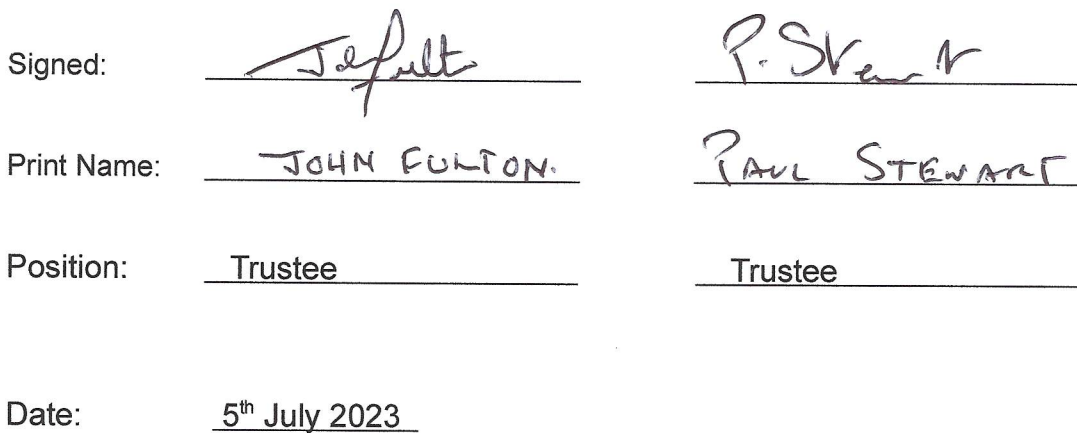 Signed: John Fulton P. Stewart
Print Name: JOHN FULTON. PAUL STEWART
Position: Trustee Trustee
Date: 5th July 2023